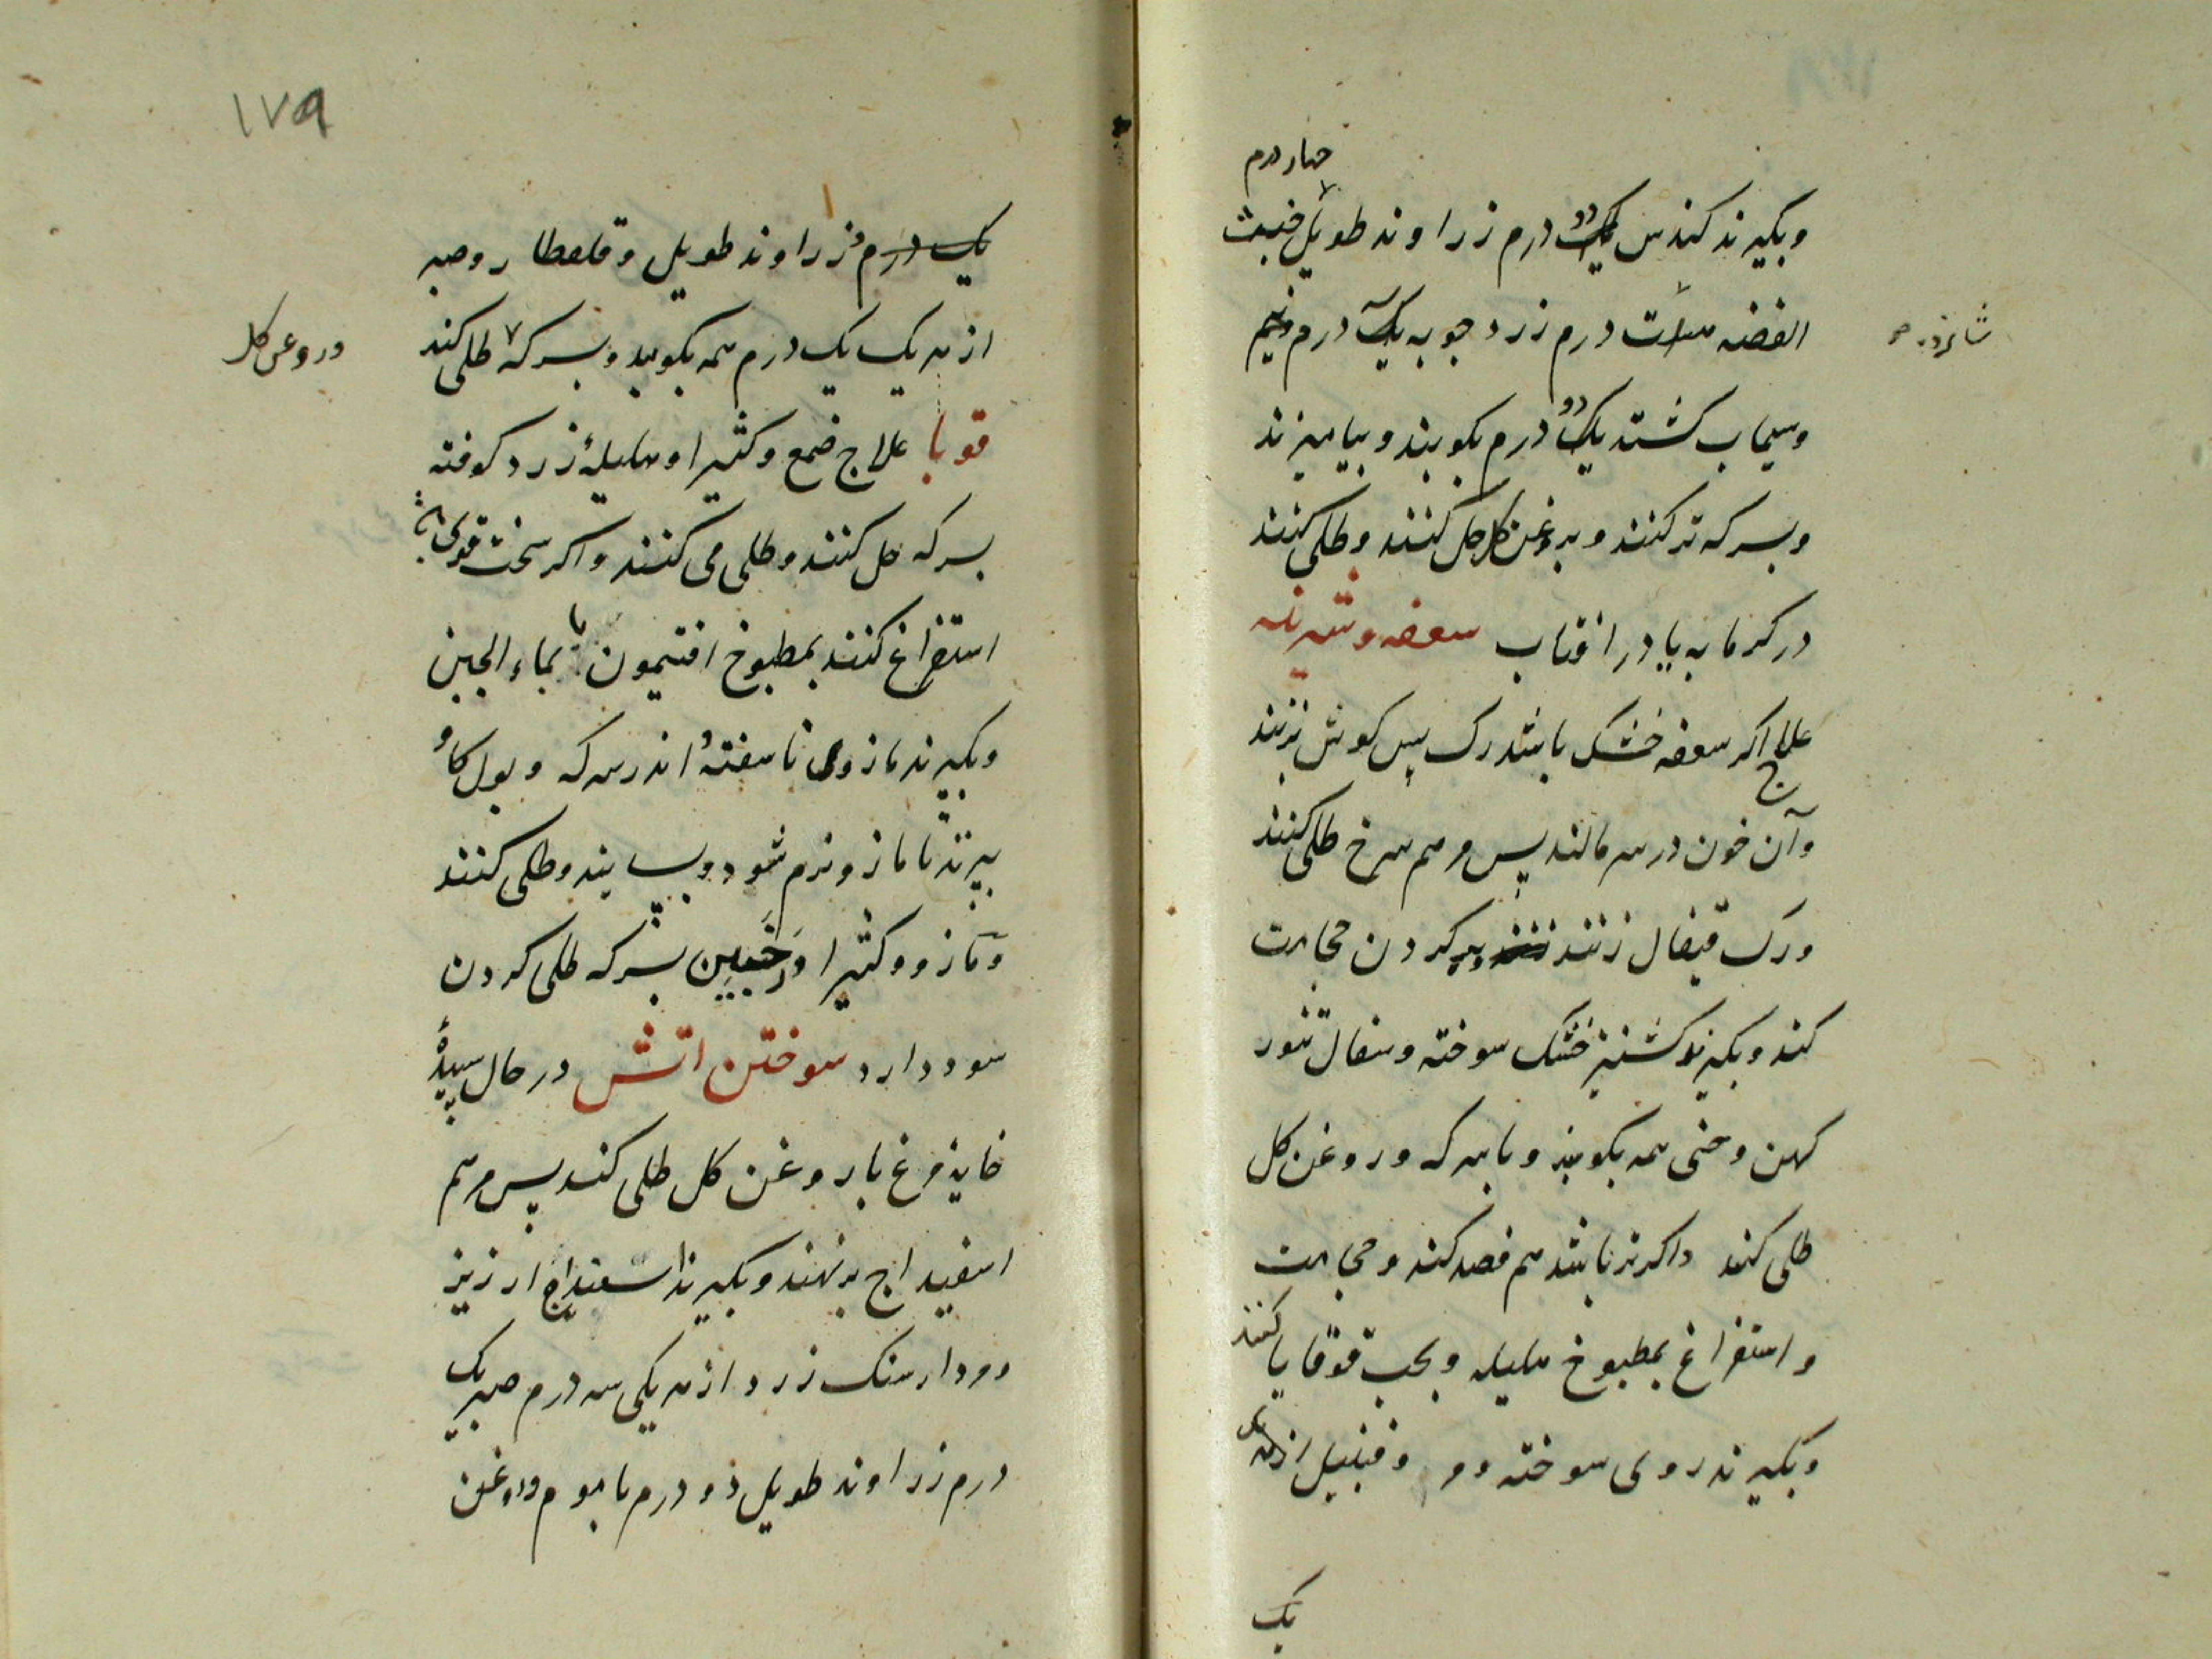 چهار درم
وبکیرند کندس یک دو درم زراوند طویل خبث
الفضه سات درم زرد جوبه یک درم ونیم
شانزده
وسیماب کشته یک دو درم بکوبند وبیامیزند
وبسرکه ترکنند وبروغن کل حل کنند وطلی کنند
درکرمابه یا در افتاب سعفه وشیرینه
علاج اکر سعفه خشک باشد رک پس کوش بزنند
وآن خون درسر مالند پس مرهم سرخ طلی کنند
ورک قیفال زنند وبر کردن حجامت
کند وبکیرند کشنیز خشک سوخته وسفال تنور
کهن وحنی همه بکوبند وبا سرکه وروغن کل
طلی کند واکر تر باشد هم فصد کند وحجامت
واستفراغ بمطبوخ هلیله وبحب قوقایا کنند
وبکیرند روی سوخته ومر وقنبیل از هر یکی
یک
۱۷۹
یک درم زراوند طویل وقلقطار وصبر
از هر یک یک درم همه بکوبند وبسرکه طلی کند
وروغن کل
قوبا علاج صمغ وکثیرا وهلیلهٔ زرد کوفته
بسرکه حل کنند وطلی می کنند واکر سخت قوی باشد
استفراغ کنند بمطبوخ افتیمون یا بماء الجبن
وبکیرند مازوی ناسفته اندر سرکه وبول کاو
بپزند تا مازو نرم شود وبسایند وطلی کنند
ومازو وکثیرا وخبین بسرکه طلی کردن
سود دارد سوختن اتش در حال سپیدهٔ
خایه مرغ با روغن کل طلی کند پس مرهم
اسفیداج برنهند وبکیرند اسفنداج ارزیز
ومردارسنک زرد از هر یکی سه درم صبر یک
درم زراوند طویل دو درم با موم وروغن